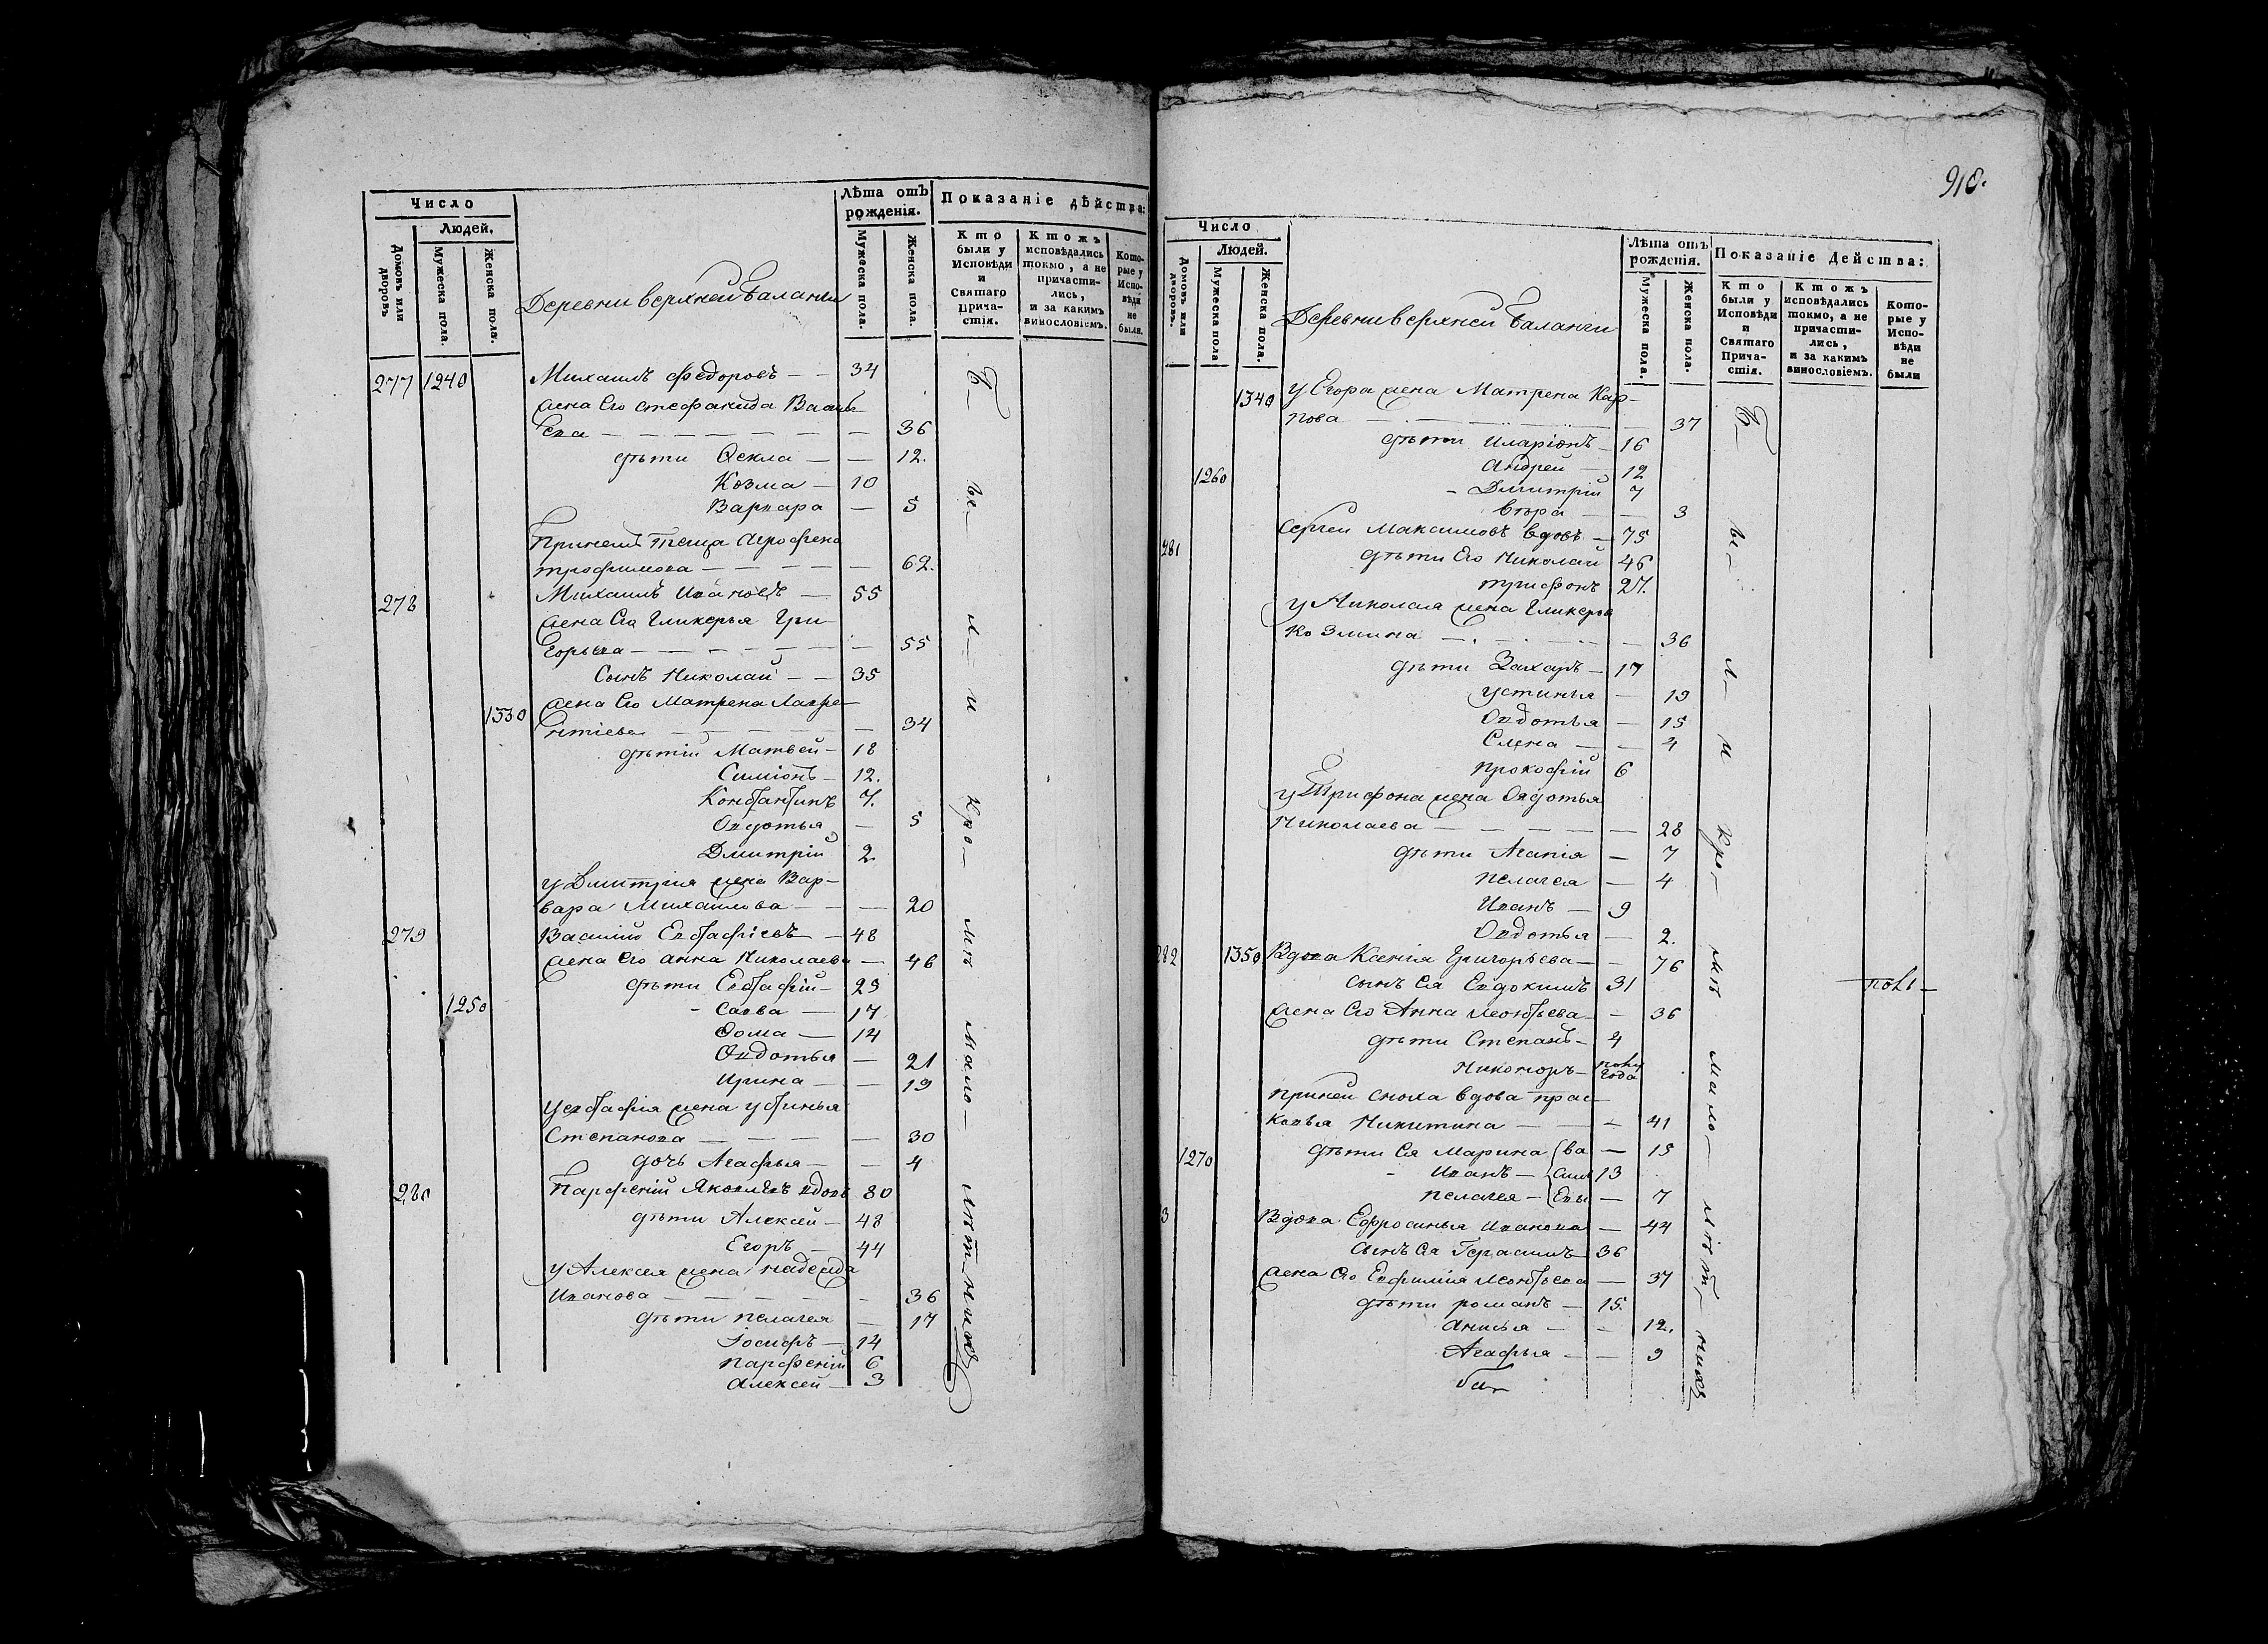 Число
Людей.
Домовъ или дворовъ
Мужеска пола.
Женска пола.
Деревни верхней Баланки
Лѣта отъ рожденія.
Мужеска пола.
Женска пола.
Показаніе дѣйства:
Кто были у Исповѣди и Святаго Прича-стія.
Ктожъ исповѣдались токмо, а не причасти-лись, и за какимъ винословіемъ.
Кото-рые у Испо-вѣди не были.
277 1240 Михаилъ Федоровъ — — 34
жена Его Стефанида Василь
ева — — — — — — — 36
дѣти Ѳекла — — 12.
Козма — 10
Варвара — 5
Принемъ теща Агрофена
трофимова — — — — — 62.
278 Михаилъ Ивановъ — 55
жена Его Гликерья Гри
горьева — — — — — — 55
Сынъ Николай — — 35
1330 жена Его Матрена Лавре
нтіева — — — — — 34
дѣтій Матвей — 18
Симіонъ — 12.
Константинъ 7.
Овдотья — 5
Дмитрій 2
у Дмитрія жена Вар-
вара Михаилова — — — 20
279 Василій Евстафіевъ — 48
жена Его анна Николаева — 46
дѣти Евстафій — 23
1250 - Савва — 17
Ѳома — 14
Овдотья — 21
Ирина — — 19
у евстафія жена устинья
Степанова — — — — 30
дочь Агафья — — 4
280 Парфеній Яковлевъ вдовъ 80
дѣти Алексей — 48
Егоръ — 44
у Алексея жена надежда
Иванова — — — — — 36
дѣти пелагея — 17
Іосифъ — 14
парфеній 6
Алексей — 3
Б— ы— л— и Кро— мѣ мало— лѣт— нихъ
918.
Число
Людей.
Домовъ или дворовъ.
Мужеска пола
Женска пола.
Деревни верхней Баланки
Лѣта отъ рожденія.
Мужеска пола.
Женска пола.
Показаніе Действа:
Кто были у Исповѣди и Святаго Прича-стія.
Ктожъ исповѣдались токмо, а не причасти-лись, и за какимъ винословіемъ.
Кото-рые у Испо-вѣди не были
1340 у Егора жена Матрена Кар-
пова — — — — 37
дѣти иларіонъ — 16
1260 Андрей — 12
- Дмитрій 7
вѣра — — 3
281 Сергей Максимовъ вдовъ — 75
дѣти Его Николай 46
трифонъ 27.
у Николая жена Гликерья
Козмина — — — — 36
дѣти Захаръ — 17
устинья — 19
Овдотья — 15
Елена — — 4
прокофій 6
у Трифона жена Овдотья
Николаева — — — — — 28
дѣти Агапія — 7
пелагея — 4
Иванъ — 9
Овдотья — 2.
282 1350 Вдова Ксенія Григорьева — — 76
сынъ Ея Евдокимъ 31 поль—
жена Его Анна Леонтьева — 36
дѣти Степанъ — 4
Никоноръ — полу года
приней сноха вдова прас—
ковья Никитина — — — 41
1270 дѣти Ея Марина (ва — 15
- Иванъ — (Сил 13
пелагея — (Евы — 7
3 Вдова Ефросинья Иванова — 44
сынъ Ея Герасимъ 36
жена Его Евфимія Леонтьева — 37
дѣти романъ — 15.
анисья — — 12.
Агафья — — 9
Б— ы— л— и Кро— мѣ мало— лѣт— нихъ